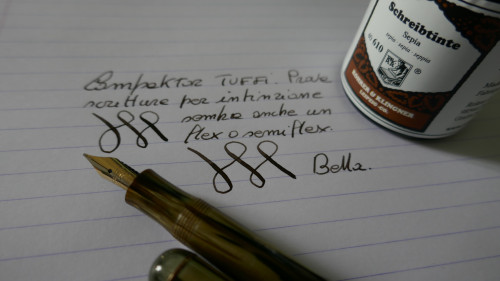 Compaktor TUFFi. Prova
scrittura per intinzione
sembra anche un
flex o semiflex.
Bella.
Schreibtinte
Sepia
sepia · sepia · seppia
No. 610
ROHRER & KLINGNER
LEIPZIG-CO.